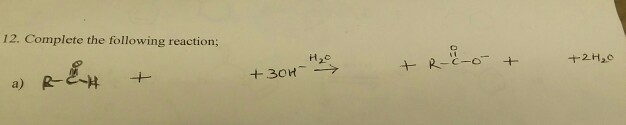 12. Complete the following reaction;
a) R-C(=O)-H + + 3OH⁻ H₂O → + R-C(=O)-O⁻ + +2H₂O